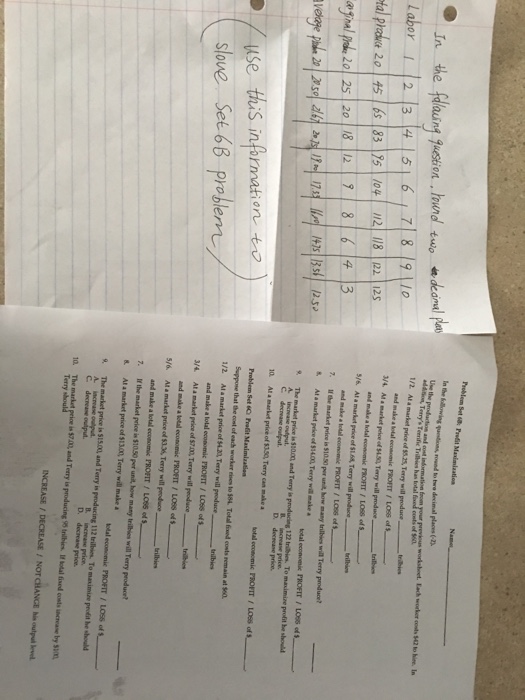 In the following question, round two decimal places
Labor 1 2 3 4 5 6 7 8 9 10
tal product 20 45 65 83 95 104 112 118 122 125
arginal 20 25 20 18 12 9 8 6 4 3
verage 20 22.50 21.67 20.75 19.00 17.33 16.00 14.75 13.56 12.50
(use this information to
slove Set 6B problem)
Problem Set 6B: Profit Maximization
Name:
In the following questions, round to two decimal places
Use the production and cost information from your previous worksheet. Each worker costs $42 to hire. In
addition, Terry's Terrific Trilbies has total fixed costs of $60.
1/2. At a market price of $5.25, Terry will produce trilbies
and make a total economic PROFIT / LOSS of $
3/4. At a market price of Terry will produce trilbies
and make a total economic PROFIT / LOSS of $
5/6. At a market price of Terry will produce trilbies
and make a total economic PROFIT / LOSS of $
7. If the market price is $10.50 per unit, how many trilbies will Terry produce?
8. At a market price of $14.00, Terry will make a total economic PROFIT / LOSS of $
9. The market price is $10.00, and Terry is producing 122 trilbies. To maximize profit he should
A. increase output. B. increase price.
C. decrease output. D. decrease price.
10. At a market price of Terry can make a total economic PROFIT / LOSS of $
Problem Set 6C: Profit Maximization
Suppose that the cost of each worker rises to $84. Total fixed costs remain at $60.
1/2. At a market price of $4.20, Terry will produce trilbies
and make a total economic PROFIT / LOSS of $
3/4. At a market price of $7.00, Terry will produce trilbies
and make a total economic PROFIT / LOSS of $
5/6. At a market price of Terry will produce trilbies
and make a total economic PROFIT / LOSS of $
7. If the market price is $10.50 per unit, how many trilbies will Terry produce?
8. At a market price of $13.00, Terry will make a total economic PROFIT / LOSS of $
9. The market price is $15.00, and Terry is producing 112 trilbies. To maximize profit he should
A. increase output. B. increase price.
C. decrease output. D. decrease price.
10. The market price is $7.00, and Terry is producing 95 trilbies. If total fixed costs increase by
Terry should INCREASE / DECREASE / NOT CHANGE his output level.